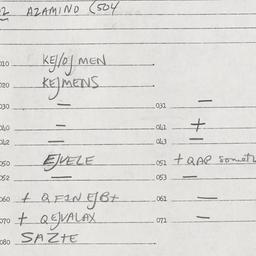 02 AZAMINO (504
010 KEJ/OJ MEN
020 KEJMENS
030 — 031 —
040 — 041 +
042 — 043 —
050 EJVELE 051 + QAP somet
052 — 053 —
060 + QFIN EJB+ 061 —
070 + QEJVALAX 071 —
080 SAZTE